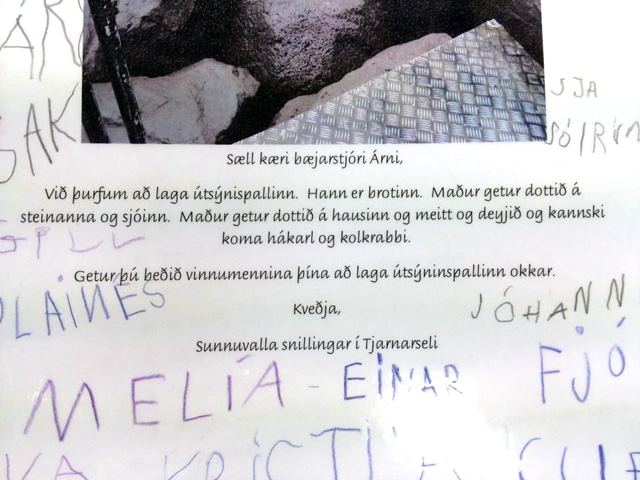 SJA
SAK
SÓLRÚN
Sæll kæri bæjarstjóri Árni,
Við þurfum að laga útsýnispallinn. Hann er brotinn. Maður getur dottið á
steinanna og sjóinn. Maður getur dottið á hausinn og meitt og deyjið og kannski
koma hákarl og kolkrabbi.
Getur þú beðið vinnumennina þína að laga útsýninspallinn okkar.
Kveðja,
JÓHANN
Sunnuvalla snillingar í Tjarnarseli
MELÍA EINAR FJÓ